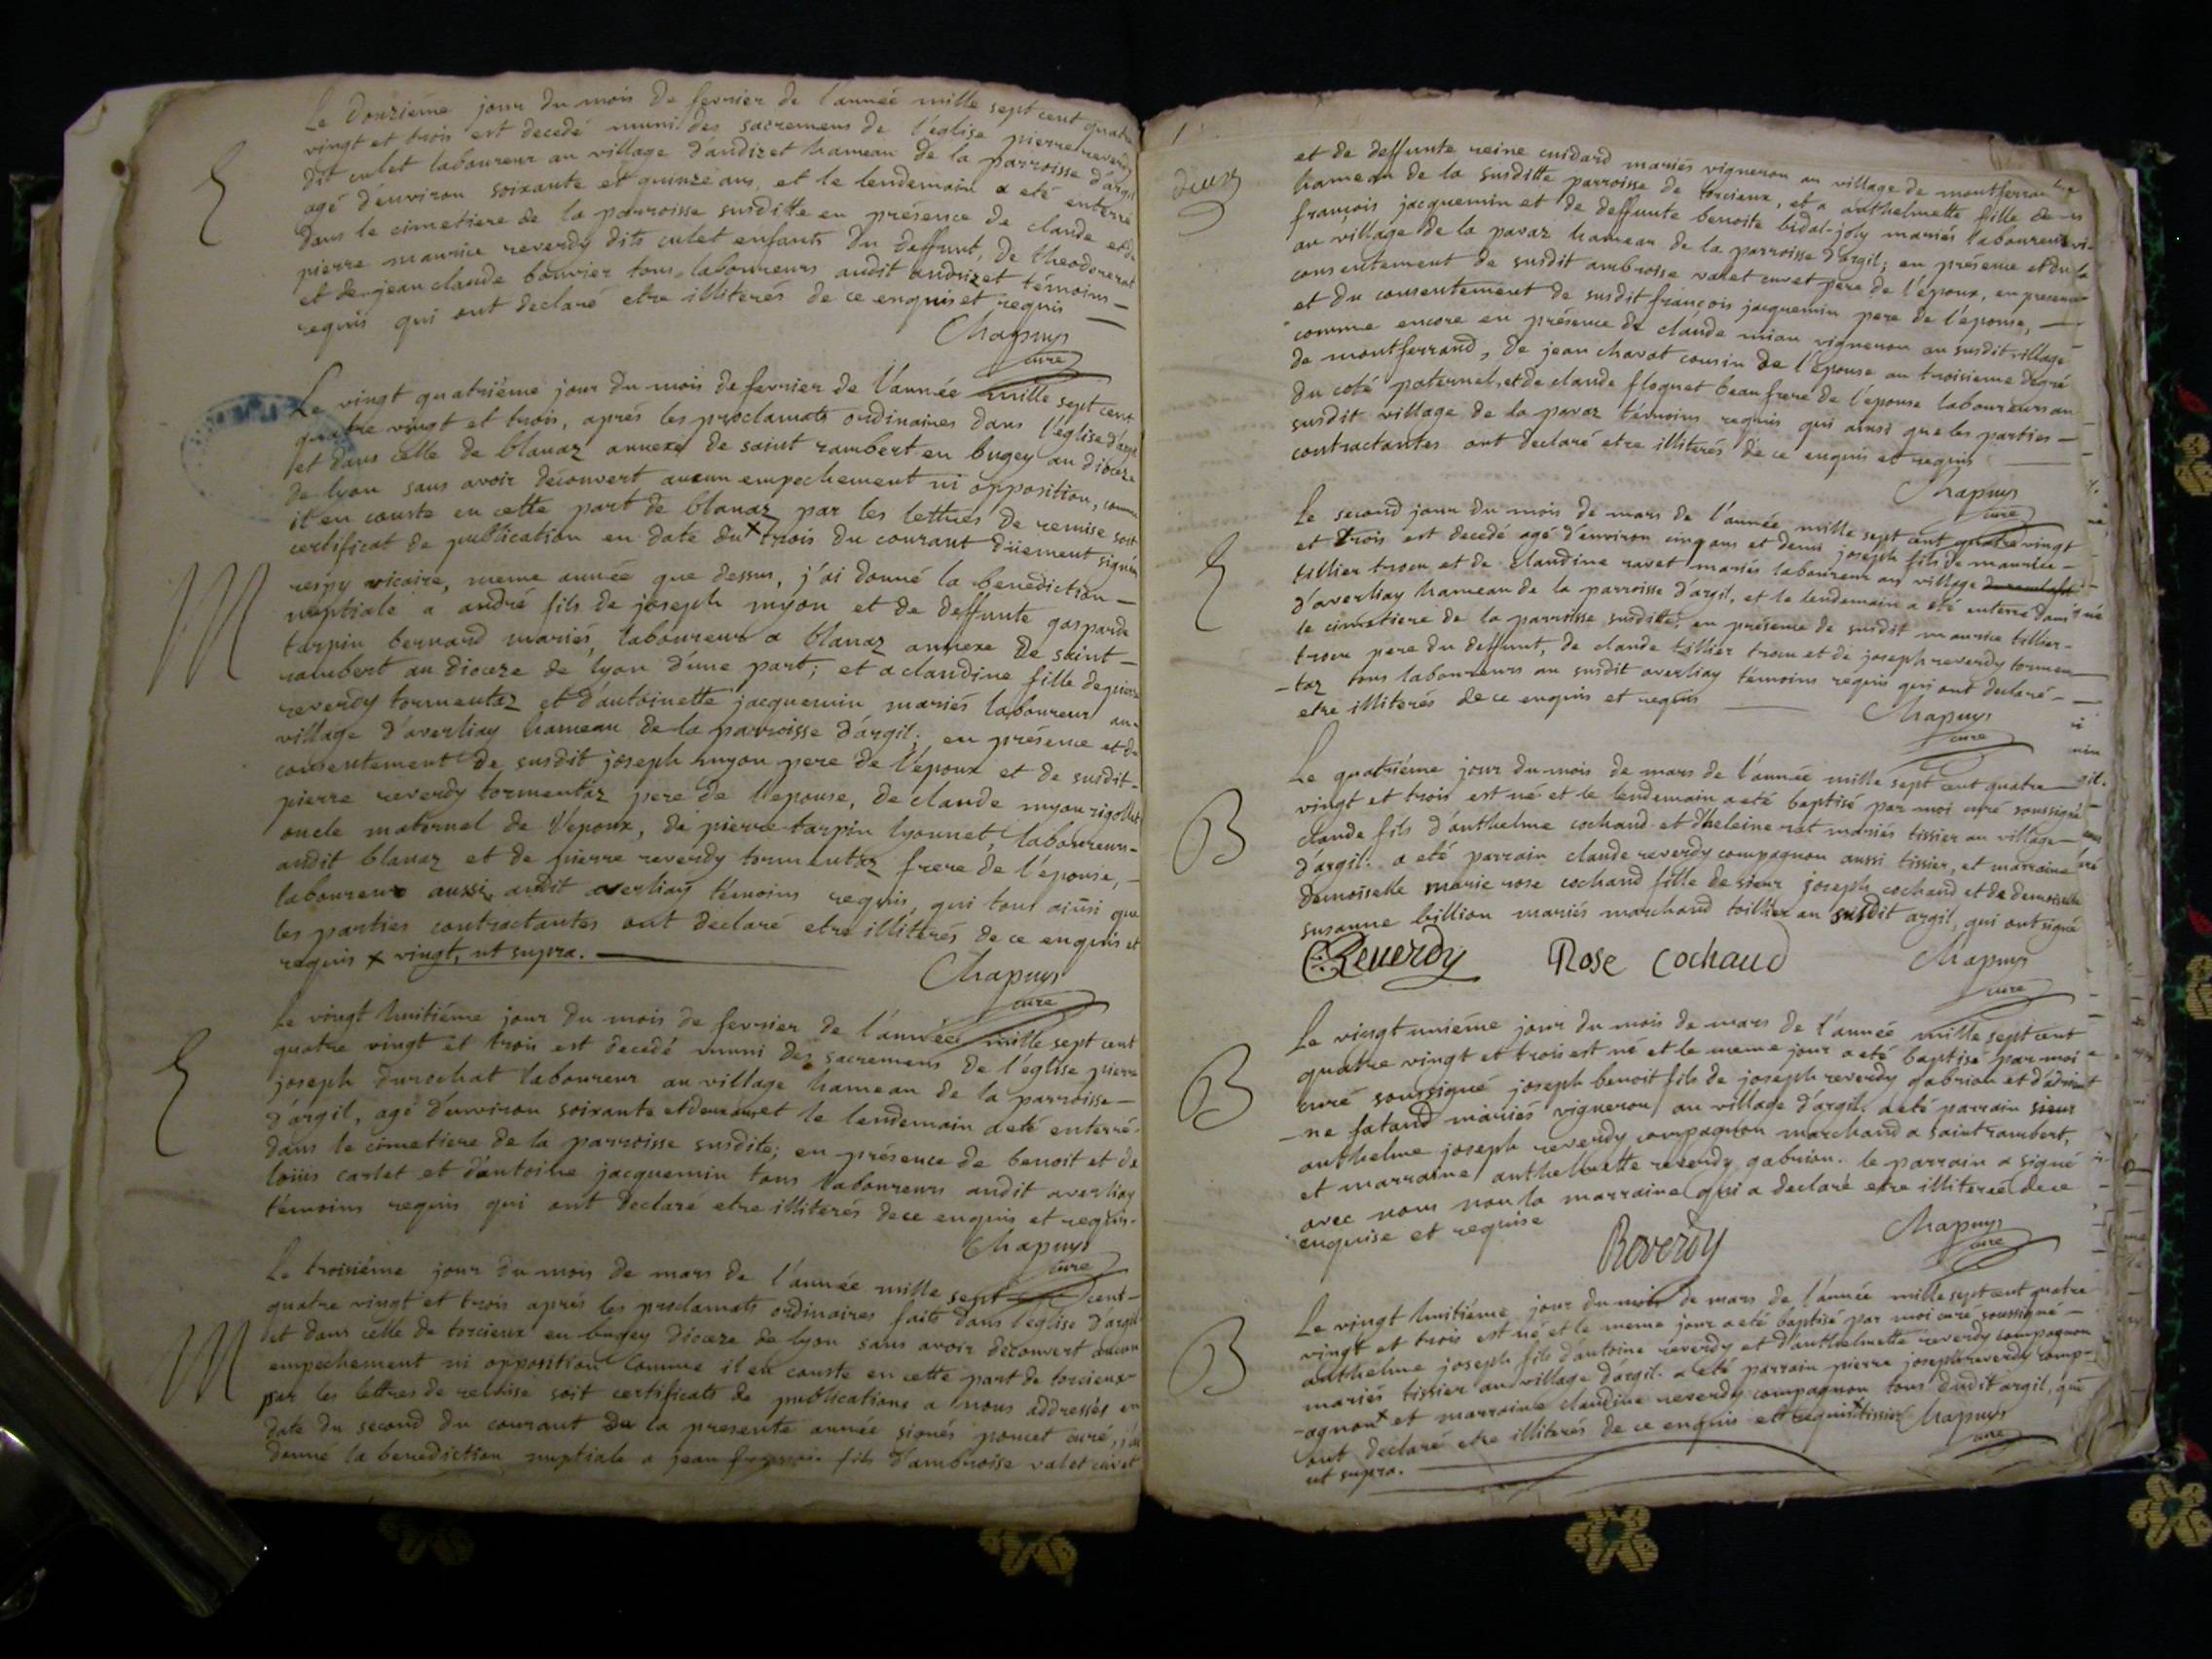 Le douzième jour du mois de fevrier de l'année mille sept cent quatre
vingt et trois est decedé muni des sacremens de l'église pierre reverdy
dit culet laboureur au village d'andizet hameau de la parroisse d'argil
agé d'environ soixante et quinze ans, et le lendemain a eté enterré
dans le cimetiere de la parroisse susditte en présence de claude et de
pierre maurice reverdy dits culet enfants du deffunt, de theodore rat
et de jean claude bouvier tous laboureurs audit andrizet témoins
requis qui ont declaré etre illiterés de ce enquis et requis
Chapuys
curé
E
Le vingt quatriéme jour du mois de fevrier de l'année mille sept cent
quatre vingt et trois, aprés les proclamats ordinaires dans l'église d'argil
et dans celle de blanaz annexe de saint rambert en bugey au dioceze
de lyon sans avoir découvert aucun empechement ni opposition, comme
il en conste en cette part de blanaz par les lettres de remise soit
certificat de publication en date du x trois du courant düement signés
respy vicaire, meme année que dessus, j'ai donné la benediction
nuptiale a andré fils de joseph myon et de deffunte gasparde
tarpin bernard mariés, laboureur a blanaz annexe de saint
rambert au dioceze de lyon d'une part; et a claudine fille de pierre
reverdy tormentaz et d'antoinette jacquemin mariés laboureur au
village d'averliay hameau de la parroisse d'argil; en présence et du
consentement de susdit joseph myon pere de l'époux et de susdit
pierre reverdy tormentaz pere de l'epouse, de claude myon rigollet
oncle maternel de l'epoux, de pierre tarpin lyonnet, laboureurs
audit blanaz et de pierre reverdy tormentaz frere de l'épouse,
laboureur aussi audit averliay témoins requis, qui tous ainsi que
les parties contractantes ont declaré etre illiterés de ce enquis et
requis x vingt, ut supra.
Chapuys
curé
M
Le vingt huitiéme jour du mois de fevrier de l'année mille sept cent
quatre vingt et trois est decedé muni des sacremens de l'église pierre
joseph durochat laboureur au village hameau de la parroisse
d'argil, agé d'environ soixante et deux ans et le lendemain a eté enterré
dans le cimetiere de la parroisse susdite; en présence de benoit et de
loüis carlet et d'antoine jacquemin tous laboureurs audit averliay
témoins requis qui ont declaré etre illiterés de ce enquis et requis.
Chapuys
curé
E
Le troisiéme jour du mois de mars de l'année mille sept cent
quatre vingt et trois aprés les proclamats ordinaires faits dans l'église d'argil
et dans celle de torcieux en bugey dioceze de lyon sans avoir découvert aucun
empechement ni opposition comme il en conste en cette part de torcieux
par les lettres de remise soit certificats de publications a nous addressés en
date du second du courant de la presente année signés poncet curé, j'ai
donné la benediction nuptiale a jean fils d'ambroise valet cuvet
M
1
deux
et de deffunte reine cuidard mariés vigneron au village de montferrand
hameau de la susditte parroisse de torcieux, et a anthelmette fille de
françois jacquemin et de deffunte benoite bidal-joly mariés laboureur
au village de la pavaz hameau de la parroisse d'argil; en présence et du
consentement de susdit ambroise valet cuvet pere de l'époux, en presence
et du consentement de susdit françois jacquemin pere de l'épouse,
comme encore en présence de claude mian vigneron au susdit village
de montferrand, de jean chavot cousin de l'épouse au troisieme degré
du coté paternel, et de claude floquet beaufrere de l'épouse laboureurs au
susdit village de la pavaz témoins requis qui ainsi que les parties
contractantes ont declaré etre illiterés de ce enquis et requis
Chapuys
curé
Le second jour du mois de mars de l'année mille sept cent quatre vingt
et trois est decedé agé d'environ cinq ans et demi joseph fils de maurice
tillier trocu et de claudine ravet mariés laboureur au village
d'averliay hameau de la parroisse d'argil, et le lendemain a eté enterré dans
le cimetiere de la parroisse susditte, en présence de susdit maurice tillier
trocu pere du deffunt, de claude tillier trocu et de joseph reverdy tormen
-taz tous laboureurs au susdit averliay témoins requis qui ont declaré
etre illiterés de ce enquis et requis
Chapuys
curé
E
Le quatriéme jour du mois de mars de l'année mille sept cent quatre
vingt et trois est né et le lendemain a eté baptisé par moi curé soussigné
claude fils d'anthelme cochand et d'heleine rat mariés tissier au village
d'argil. a eté parrain claude reverdy compagnon aussi tissier, et marraine
demoiselle marie rose cochand fille de sieur joseph cochand et de demoiselle
susanne billion mariés marchand toillier au susdit argil, qui ont signé
C. Reuerdy Rose Cochaud Chapuys
curé
B
Le vingt unième jour du mois de mars de l'année mille sept cent
quatre vingt et trois est né et le meme jour a eté baptisé par moi
curé soussigné joseph benoit fils de joseph reverdy gabrion et d'adrien
-ne fatand mariés vigneron au village d'argil. a eté parrain sieur
anthelme joseph reverdy compagnon marchand a saint rambert,
et marraine anthelmette reverdy gabrion. le parrain a signé
avec nous non la marraine qui a declaré etre illiterée de ce
enquise et requise
Reverdy
Chapuys
curé
B
Le vingt huitiéme jour du mois de mars de l'année mille sept cent quatre
vingt et trois est né et le meme jour a eté baptisé par moi curé soussigné
anthelme joseph fils d'antoine reverdy et d'anthelmette reverdy compagnon
mariés tissier au village d'argil. a eté parrain pierre joseph reverdy comp-
-agnon x et marraine claudine reverdy compagnon tous dudit argil, qui
ont declaré etre illiterés de ce enquis et requis x tissier Chapuys
curé
ut supra.
B